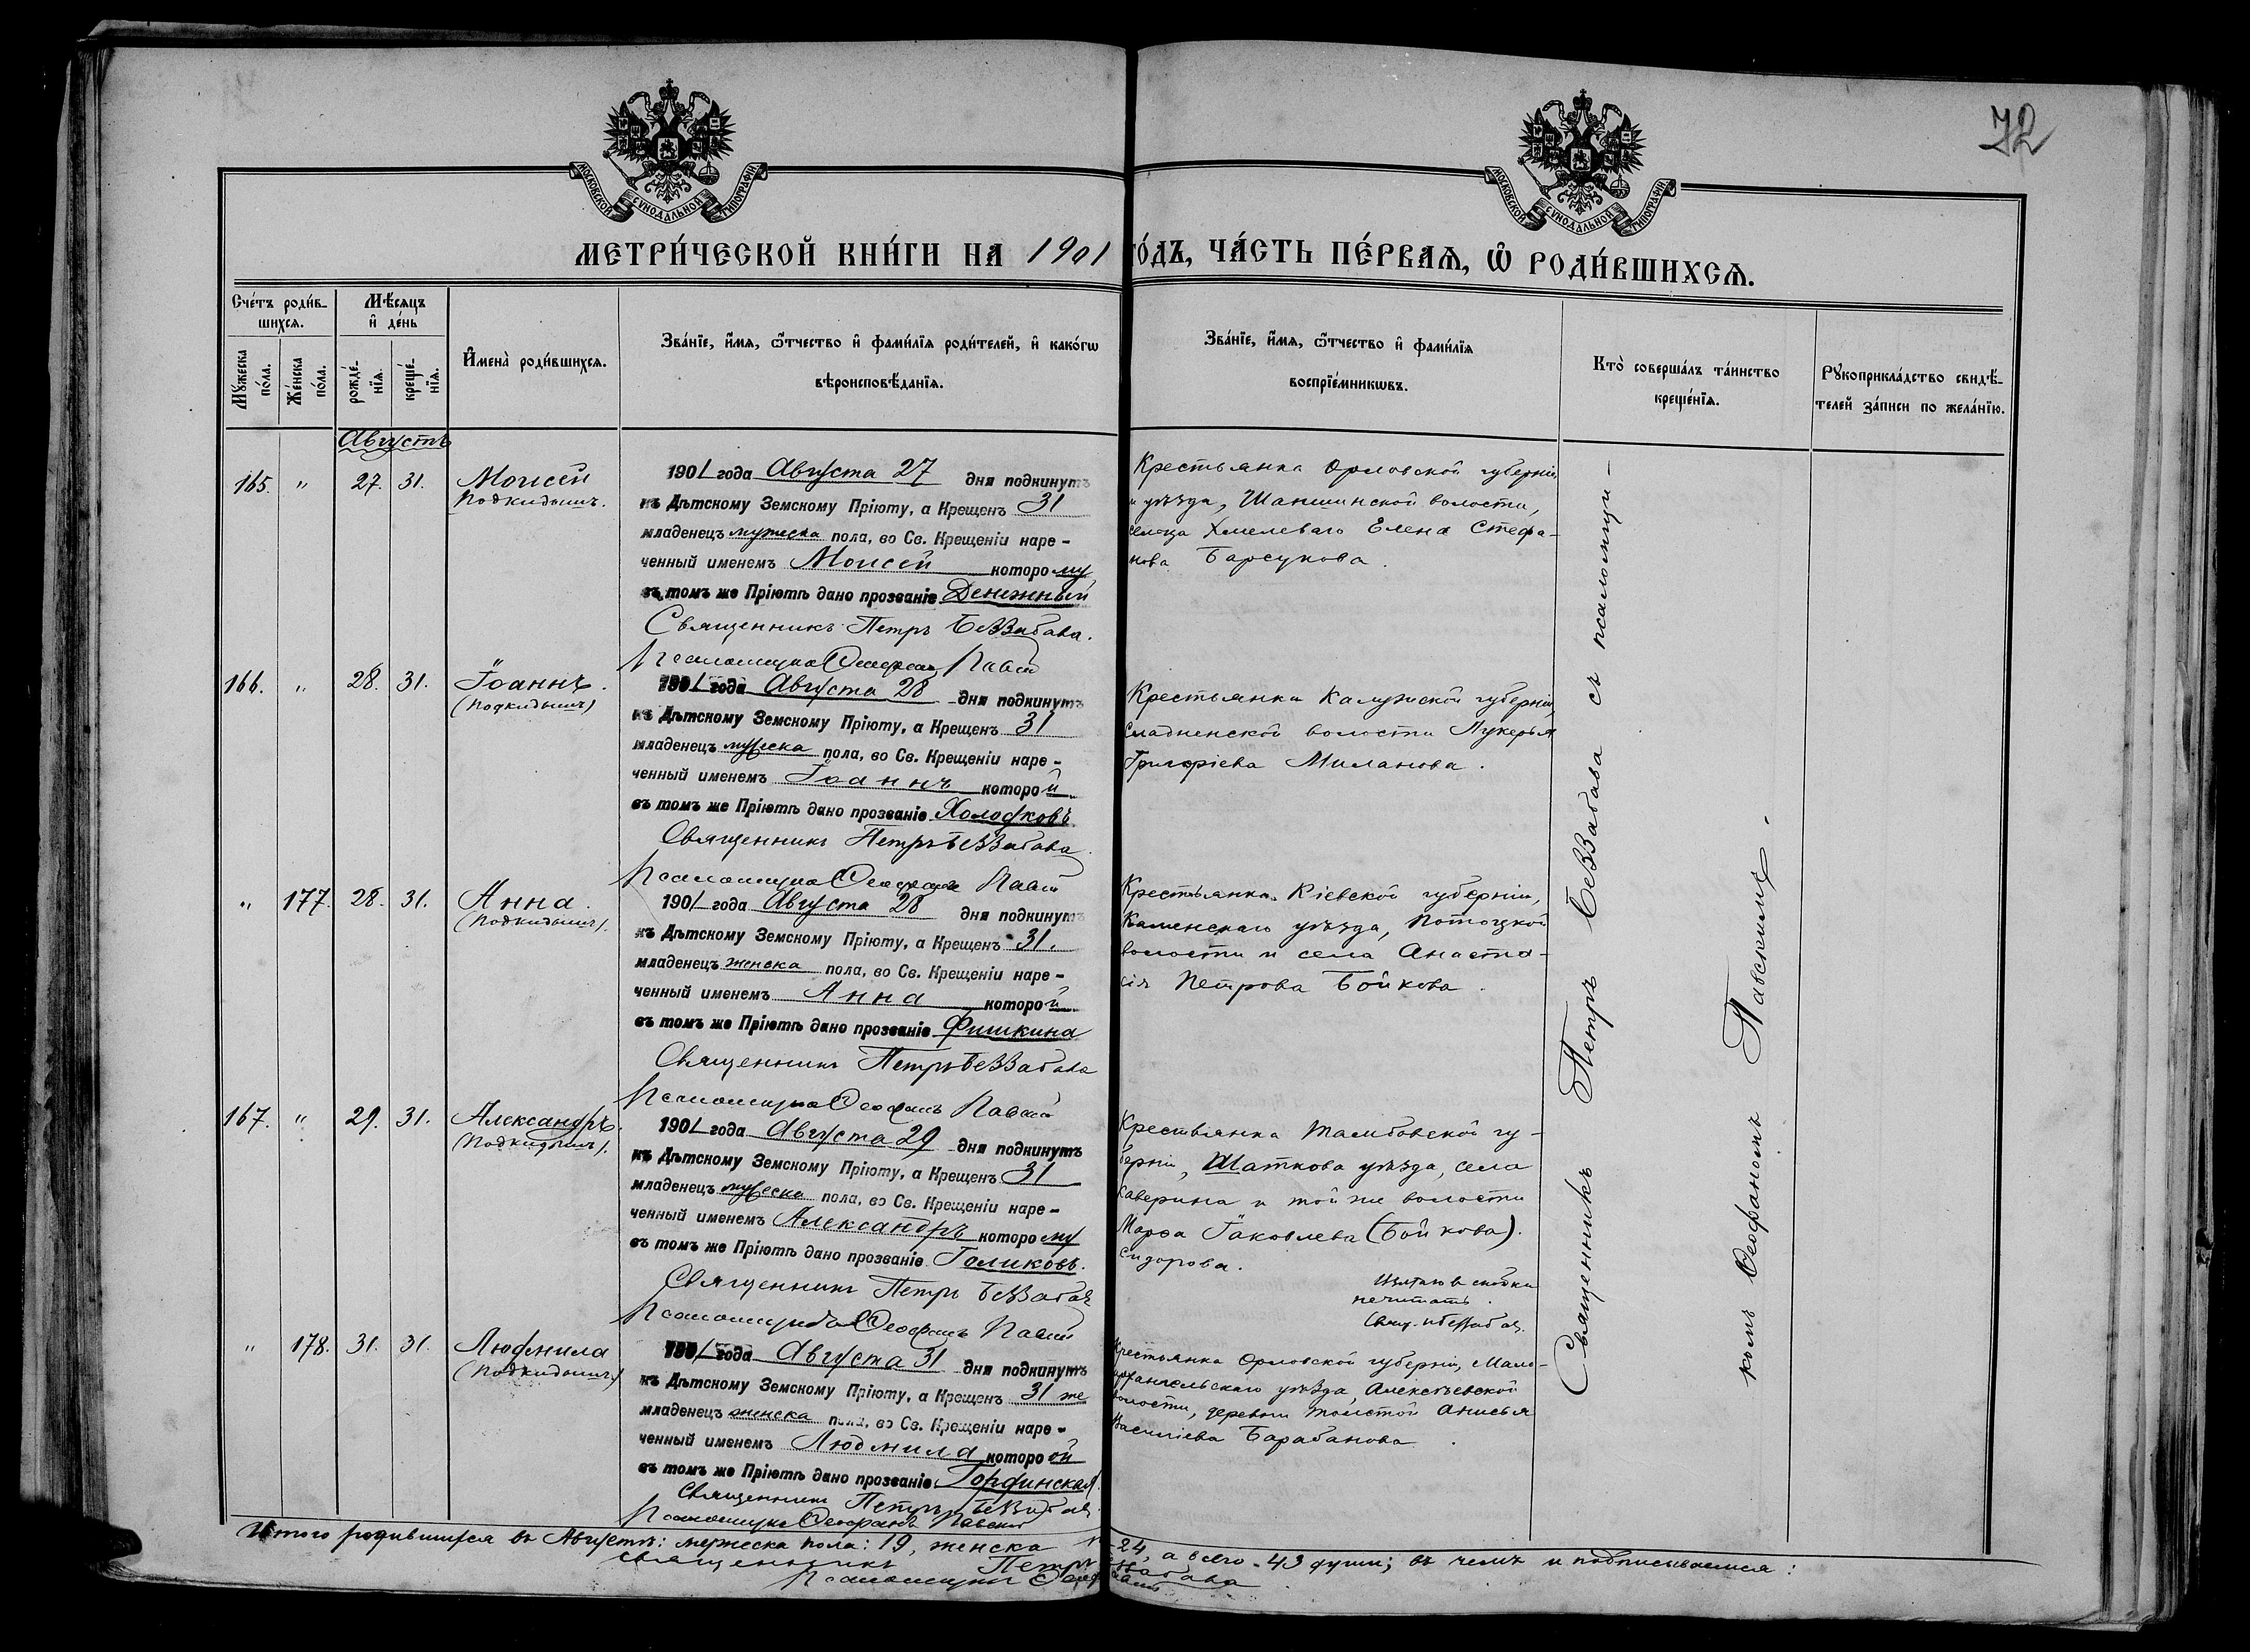 72
МОСКОВСКОЙ СѴНОДАЛЬНОЙ ТИПОГРАФІИ
МОСКОВСКОЙ СѴНОДАЛЬНОЙ ТИПОГРАФІИ
МЕТРИ́ЧЕСКОЙ КНИ́ГИ НА 1901 ГО́ДЪ, ЧА́СТЬ ПЕ́РВАѦ, Ѽ РОДИ́ВШИХСѦ.
Сче́тъ роди́в-
шихсѧ.
Мꙋжеска по́ла.
Же́нска по́ла.
Мѣ́сѧцъ
и҆ де́нь
рожде́-
нїѧ.
креще́-
нїѧ.
И҆мена̀ роди́вшихсѧ.
Зва́нїе, и҆́мѧ, ѻ҆́тчество и҆ фами́лїѧ роди́телей, и҆ како́гѡ
вѣроисповѣ́данїѧ.
Зва́нїе, и҆́мѧ, ѻ҆́тчество и҆ фами́лїѧ
воспрїе́мникѡвъ.
Кто̀ соверша́лъ та́инство
креще́нїѧ.
Рꙋкоприкла́дство свидѣ́-
телей за́писи по жела́нїю.
Августъ
165. " 27. 31. Моисей
Подкидышъ.
1901 года Августа 27 дня подкинутъ
къ Дѣтскому Земскому Пріюту, а Крещенъ 31
младенецъ мужеска пола, во Св. Крещеніи наре-
ченный именемъ Моисей которому
въ томъ же Пріютѣ дано прозваніе Денежный
Священникъ Петръ Беззабава.
Крестьянка Орловской губерніи
и уѣзда, Шаншинской волости,
сельца Хмелеваго Елена Стефа-
нова Барсукова.
166. " 28. 31. Іоаннъ.
(Подкидышъ)
1901 года Августа 28 дня подкинутъ
къ Дѣтскому Земскому Пріюту, а Крещенъ 31
младенецъ мужеска пола, во Св. Крещеніи наре-
ченный именемъ Іоаннъ которой
въ томъ же Пріютѣ дано прозваніе Холодковъ.
Священникъ Петръ Беззабава.
Крестьянка Калужской губерніи,
волости Лукерья
Григоріева Миланова.
" 177. 28. 31. Анна.
(Подкидышъ).
1901 года Августа 28 дня подкинутъ
къ Дѣтскому Земскому Пріюту, а Крещенъ 31.
младенецъ женска пола, во Св. Крещеніи наре-
ченный именемъ Анна которой
въ томъ же Пріютѣ дано прозваніе Фишкина
Священникъ Петръ Беззабава
Крестьянка Кіевской губерніи,
Каменскаго уѣзда, Потоцкой
волости и села Анаста-
сія Петрова Бойкова.
167. " 29. 31. Александръ.
(Подкидышъ).
1901 года Августа 29 дня подкинутъ
къ Дѣтскому Земскому Пріюту, а Крещенъ 31
младенецъ мужеска пола, во Св. Крещеніи наре-
ченный именемъ Александръ которому
въ томъ же Пріютѣ дано прозваніе Голиковъ.
Священникъ Петръ Беззабава
Крестьянка Тамбовской гу-
берніи, Шаткова уѣзда, села
Каверина и той же волости
Марѳа Іаковлева (Бойкова).
Сидорова.
не читать.
" 178. 31. 31. Людмила
(Подкидышъ)
1901 года Августа 31 дня подкинутъ
къ Дѣтскому Земскому Пріюту, а Крещенъ 31 же
младенецъ женска пола, во Св. Крещеніи наре-
ченный именемъ Людмила которой
въ томъ же Пріютѣ дано прозваніе Гординская.
Священникъ Петръ Беззабава
Псаломщикъ Ѳеофанъ Павскій
Крестьянка Орловской губерніи, Мало-
архангельскаго уѣзда, Алексѣевской
волости, деревни Толстой Анисья
Василіева Барабанова.
Священникъ Петръ Беззабава съ псаломщи-
комъ Ѳеофаномъ Павскимъ.
Итого родившихся въ Августѣ: мужеска пола: 19, женска - 24, а всего - 43 души; въ чемъ и подписываемся:
Священникъ Петръ Беззабава